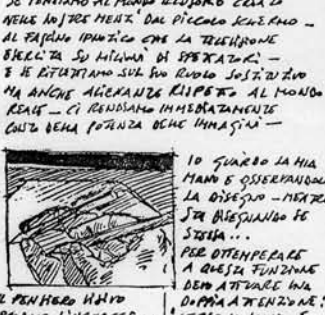 SE TORNIAMO AL MONDO ILLUSORIO CREATO
NELLE NOSTRE MENTI DAL PICCOLO SCHERMO —
AL FASCINO IPNOTICO CHE LA TELEVISIONE
ESERCITA SU MILIONI DI SPETTATORI —
E SE RIFLETTIAMO SUL SUO RUOLO SOSTITUTIVO
MA ANCHE ALIENANTE RISPETTO AL MONDO
REALE — CI RENDIAMO IMMEDIATAMENTE
CONTO DELLA POTENZA DELLE IMMAGINI —
IO GUARDO LA MIA
MANO E OSSERVANDOLA
LA DISEGNO — MENTRE
STA DISEGNANDO SE
STESSA...
PER OTTEMPERARE
A QUESTA FUNZIONE
DEVO ATTIVARE UNA
DOPPIA ATTENZIONE:
IL PENSIERO VISIVO